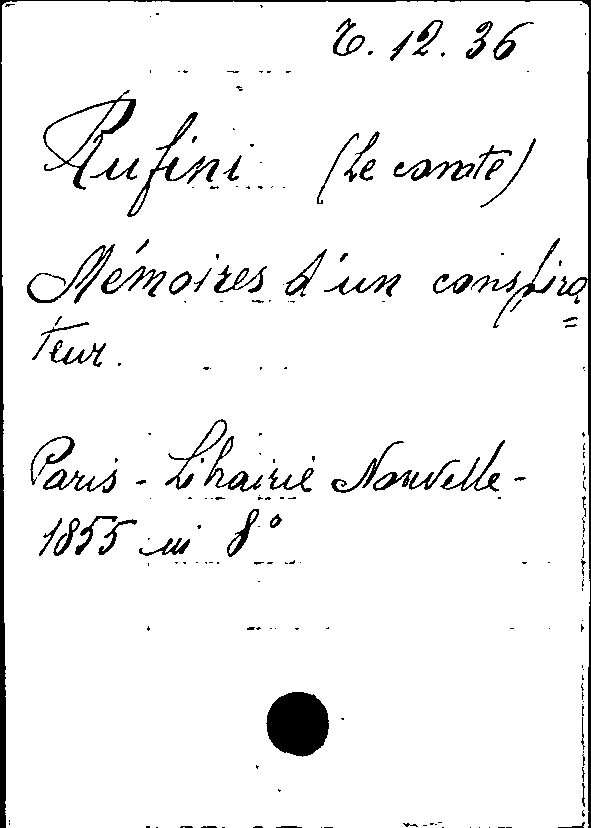 T. 12. 36
Rufini (Le comte)
Mémoires d'un conspira=
teur.
Paris - Librairie Nouvelle -
1855 in 8°